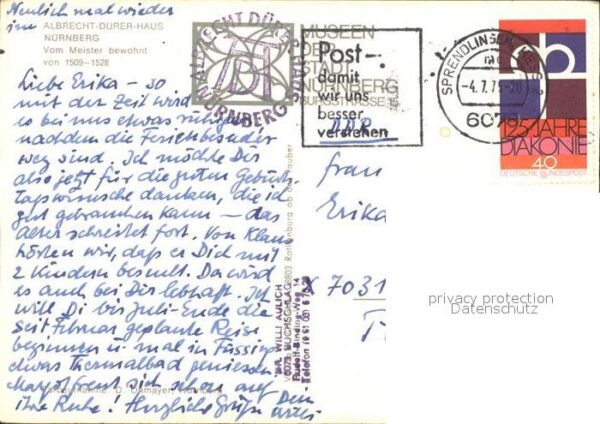 Neulich mal wieder
im
ALBRECHT-DÜRER-HAUS
NÜRNBERG
Vom Meister bewohnt
von 1509–1528
Liebe Erika – so
mit der Zeit wird
es bei uns etwas ruhiger
nachdem die Ferienbesucher
weg sind. Ich möchte Dir
also jetzt für die guten Geburts-
tagswünsche danken, die ich
gut gebrauchen kann – das
Alter schreitet fort. Von Klaus
hörten wir, daß er Dich mit
2 Kindern besucht. Da wird
es auch bei Dir lebhaft. Ich
will Di bis Juli-Ende die
seit Februar geplante Reise
beginnen u. mal in Füssing
etwas Thermalbad geniessen.
Margot freut sich schon auf
ihre Ruhe! Herzliche Grüße
ALBRECHT DÜRER HAUS NÜRNBERG
MUSEEN
DER
STADT
NÜRNBERG
BURGSTRASSE 15
Post–
damit
wir uns
besser
verstehen
SPRENDLINGEN
- 4.7.79 - 20
6079
125 JAHRE
DIAKONIE
40
DEUTSCHE BUNDESPOST
Frau
Erika
X 7031
DR. WILLI AULICH
6073 BUCHSCHLAG
Rudolf-Binding-Weg 14
privacy protection
Datenschutz